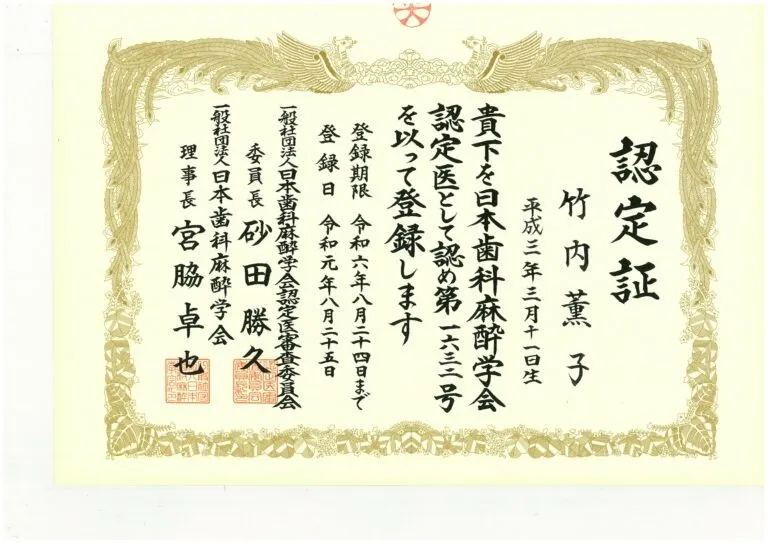 認定証
竹内薫子
平成三年三月十一日生
貴下を日本歯科麻酔学会
認定医として認め第一六三二号
を以って登録します
登録期限 令和六年八月二十四日まで
登録日 令和元年八月二十五日
一般社団法人日本歯科麻酔学会認定医審査委員会
委員長 砂田勝久
一般社団法人日本歯科麻酔学会
理事長 宮脇卓也